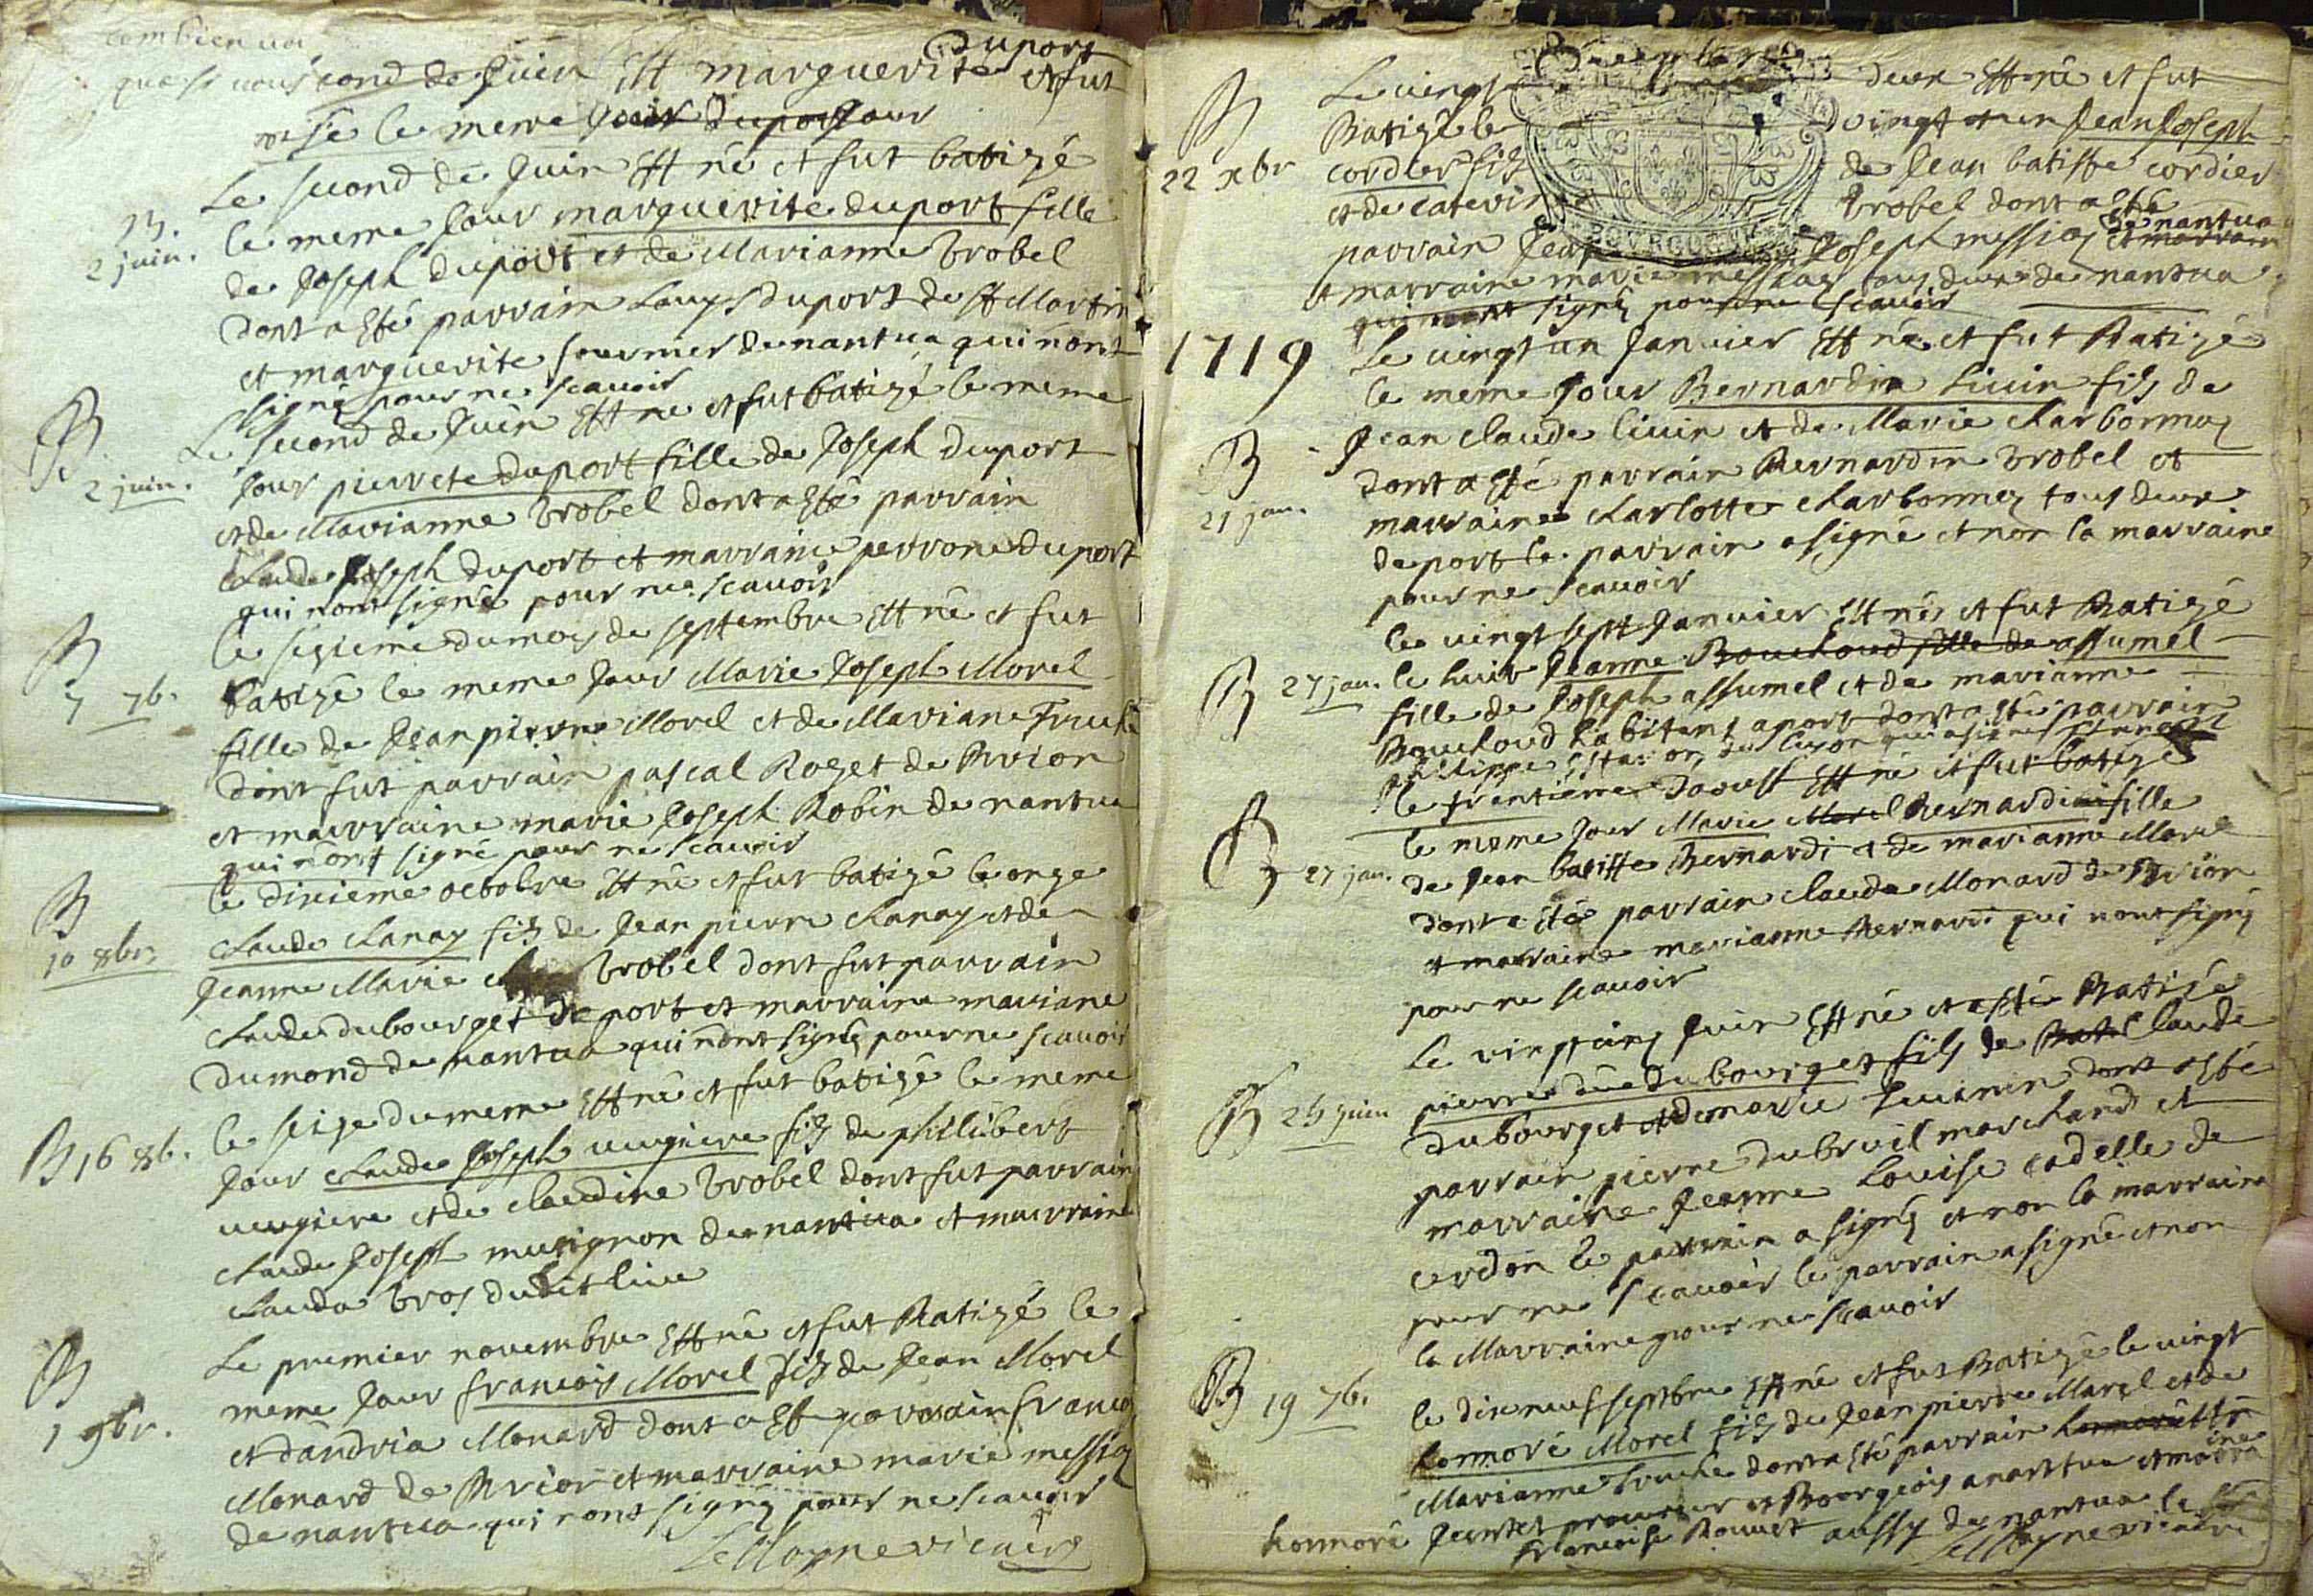 combien
que si nous cond de Juin Est marguerite duport
et fut
tisé le meme Jour duport Jour
Le second de Juin Est né et fut batizé
B.
2 juin.
le meme Jour marguerite duport fille
de Joseph duport et de Marianne brobel
dont a esté parrain Louys duport de St Martin
et marguerite fournier de nantua qui nont
signé pour ne scauoir
B.
2 juin.
Le second de Juin Est né et fut batizé le meme
Jour pierrete duport fille de Joseph duport
et de Marianne brobel dont a esté parrain
Claude Joseph duport et marraine perrone duport
qui nont signé pour ne scauoir
B
7 7b.
le sezieme du moy de septembre Est né et fut
batizé le meme Jour Marie Joseph Morel
fille de Jean pierre Morel et de Mariane
dont fut parrain pascal Roget de Brion
et marraine marie Joseph Robin de nantua
qui nont signé pour ne scauoir
B
10 8br.
le dixieme octobre Est né et fut batizé le onze
Claude Chanay fils de Jean pierre Chanay et de
Jeanne Marie brobel dont fut parrain
Claude dubourget de port et marraine mariane
dumond de nantua qui nont signé pour ne scauoir
B 16 8b.
le seize du meme Est né et fut batizé le meme
Jour Claude Joseph uugiere fils de phillibert
uugiere et de claudine brobel dont fut parrain
Claude Joseph musignon de nantua et marraine
Clauda bros dudit lieu
B
1 9br.
Le premier nouembre Est né et fut Batizé le
meme Jour francois Morel fils de Jean Morel
et dandria Monard dont a est parrain francois
Monard de Brion et marraine marie messia
de nantua qui nont signé pour ne scauoir
LeMoyne vicaire
B
22 xbr
Le vingt deux Est né et fut
Batizé le vingt et un Jean Joseph
cordier fils de Jean batiste cordier
et de caterine brobel dont a esté
parrain Jean Joseph messia de nantua et marrain
et marraine marie messia tous deux de nantua
qui nont signé pour ne scauoir
1719
B
21 jan.
Le vingt un Januier Est né et fut Batizé
le meme Jour Bernardin Liuin fils de
Jean claude liuin et de Marie charbonnay
dont a esté parrain Bernardin brobel et
marraine charlotte charbonney tous deux
de port le parrain a signé et non la marraine
pour ne scauoir
B 27 jan.
le vingt sept Januier Est né et fut Batizé
le huit Jeanne Bouchoud fille de assumel
fille de Joseph assumel et de marianne
Bouchoud habitant a port dont a esté parrain
philippe
B 27 jan.
le trentieme daoust Est né et fut batizé
le meme Jour Marie Morel Bernardi fille
de Jean batiste Bernardi et de marianne Morel
dont a été parrain claude Monard de Brion
et marraine marianne Bernardi qui nont signé
pour ne scauoir
B 25 juin
Le vint cinq Juin Est né et a esté Batizé
pierre dubourget fils de Claude
dubourget et de marie Liuinin dont a esté
parrain pierre dubreuil marchand et
marraine Jeanne Louise cadelle de
cerdon le parrain a signé et non la marraine
pour ne scauoir le parrain a signé et non
la Marraine pour ne scauoir
B 19 7b.
le dixneuf septbre Est né et fut Batizé le vingt
honnoré Morel fils de Jean pierre Morel et de
Marianne dont a esté parrain
honnoré procureur et Bourgeois a nantua et marraine
francoise Rouuet aussy de nantua
LeMoyne vicaire